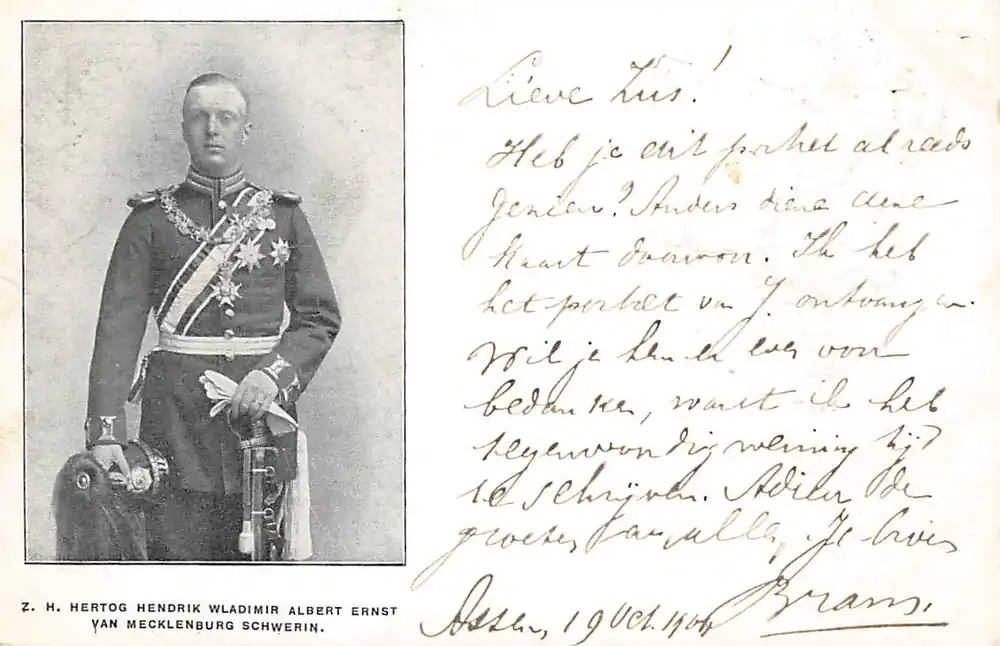 Lieve Zus!
Heb je dit portret al reeds
gezien? Anders diene deze
kaart daarvoor. Ik heb
het portret van J. ontvangen.
Wil je hem er even voor
bedanken, want ik heb
tegenwoordig weinig tijd
te schrijven. Adieu de
groeten aan alle. Je broer
Bram.
Assen, 19 Oct. 190
Z. H. HERTOG HENDRIK WLADIMIR ALBERT ERNST
VAN MECKLENBURG SCHWERIN.